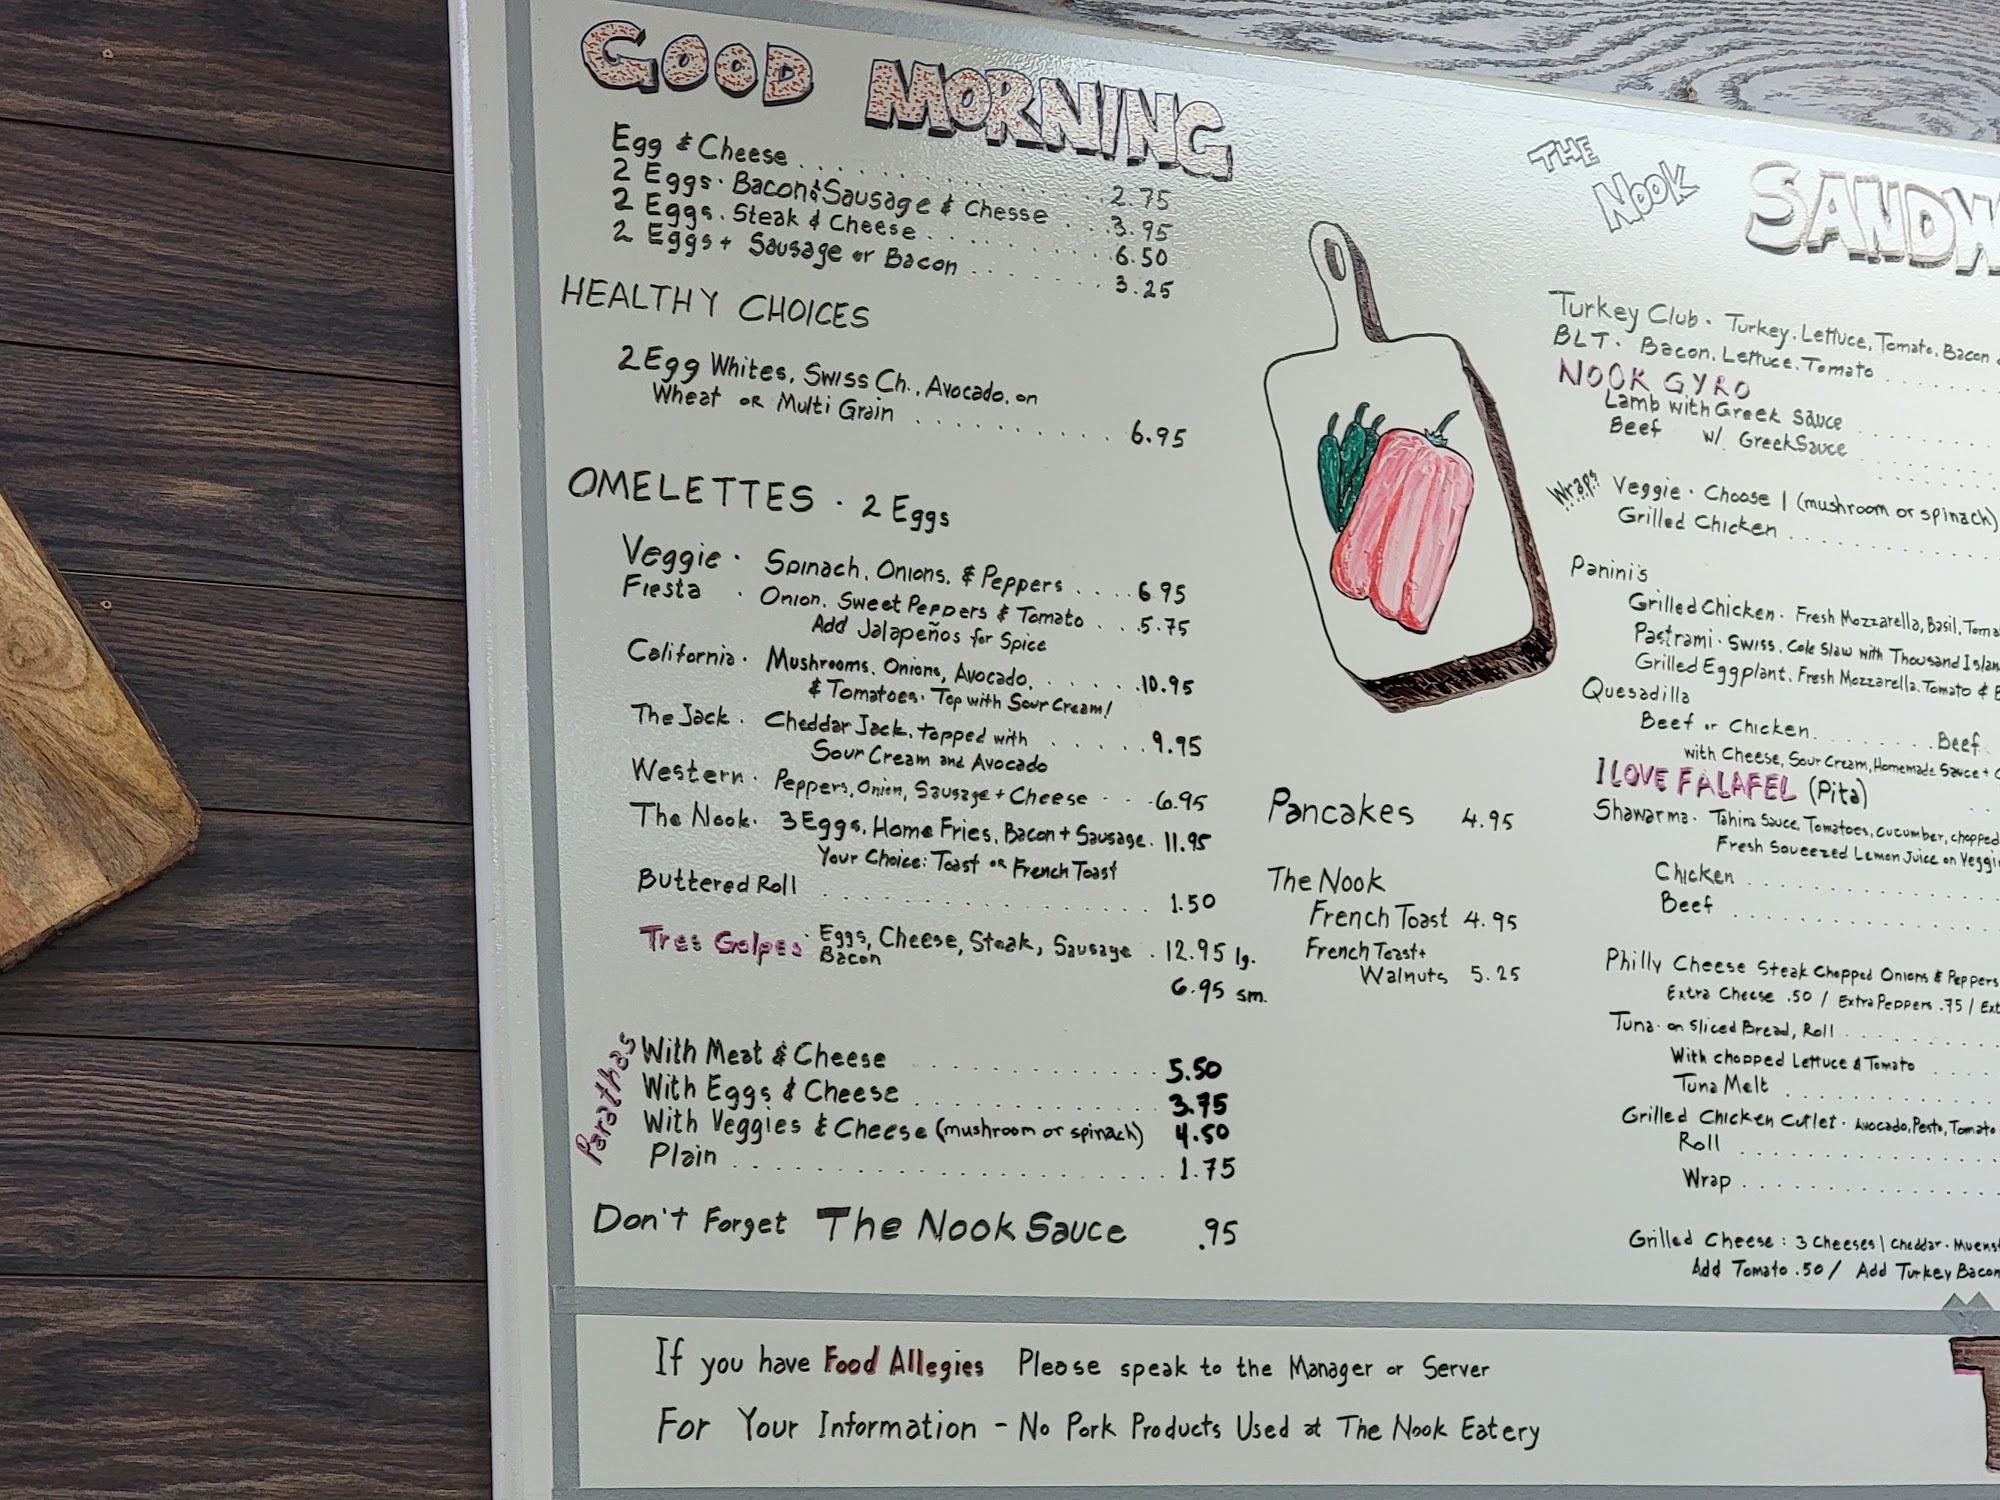 GOOD MORNING
Egg & Cheese . . . . . . . . . . . . . . . 2.75
2 Eggs. Bacon & Sausage & Chesse . . . 3.95
2 Eggs. Steak & Cheese . . . . . . . . . 6.50
2 Eggs + Sausage or Bacon . . . . . . . 3.25
HEALTHY CHOICES
2 Egg Whites, Swiss Ch., Avocado, on
Wheat OR Multi Grain . . . . . . . . . . 6.95
OMELETTES . 2 Eggs
Veggie . Spinach, Onions, & Peppers . . . . 6.95
Fiesta . Onion, Sweet Peppers & Tomato . . . 5.75
Add Jalapeños for Spice
California . Mushrooms, Onions, Avocado, . . . . . 10.95
& Tomatoes . Top with Sour Cream!
The Jack . Cheddar Jack, topped with . . . . . . 9.95
Sour Cream and Avocado
Western . Peppers, Onion, Sausage + Cheese . . . 6.95
The Nook . 3 Eggs, Home Fries, Bacon + Sausage . 11.95
Your Choice: Toast OR French Toast
Buttered Roll . . . . . . . . . . . . . . . . 1.50
Tres Golpes . Eggs, Cheese, Steak, Sausage . 12.95 lg.
Bacon
6.95 sm.
Parathas
With Meat & Cheese . . . . . . . . . . . . . 5.50
With Eggs & Cheese . . . . . . . . . . . . . 3.75
With Veggies & Cheese (mushroom or spinach) 4.50
Plain . . . . . . . . . . . . . . . . . . . . . 1.75
Don't Forget The Nook Sauce .95
Pancakes 4.95
The Nook
French Toast 4.95
French Toast +
Walnuts 5.25
THE NOOK
SANDW
Turkey Club . Turkey, Lettuce, Tomato, Bacon
BLT . Bacon, Lettuce, Tomato . . . . . .
NOOK GYRO
Lamb with Greek Sauce . . . . . .
Beef w/. Greek Sauce . . . . . .
Wraps
Veggie . Choose 1 (mushroom or spinach)
Grilled Chicken . . . . . . . . .
Panini's
Grilled Chicken . Fresh Mozzarella, Basil, Toma
Pastrami . Swiss, Cole Slaw with Thousand Islan
Grilled Eggplant, Fresh Mozzarella, Tomato & B
Quesadilla
Beef or Chicken . . . . . . . . Beef
with Cheese, Sour Cream, Homemade Sauce +
I LOVE FALAFEL (Pita)
Shawarma . Tahina Sauce, Tomatoes, cucumber, chopped
Fresh Squeezed Lemon Juice on Veggi
Chicken . . . . . . . . . . .
Beef . . . . . . . . . . . .
Philly Cheese Steak Chopped Onions & Peppers
Extra Cheese .50 / Extra Peppers .75 / Ext
Tuna . on Sliced Bread, Roll . . . . . . .
With chopped Lettuce & Tomato . . . .
Tuna Melt . . . . . . . . . .
Grilled Chicken Cutlet . Avocado, Pesto, Tomato
Roll . . . . . . . . . . . .
Wrap . . . . . . . . . . . .
Grilled Cheese : 3 Cheeses | Cheddar . Muenst
Add Tomato .50 / Add Turkey Bacon
If you have Food Allegies Please speak to the Manager or Server
For Your Information - No Pork Products Used at The Nook Eatery